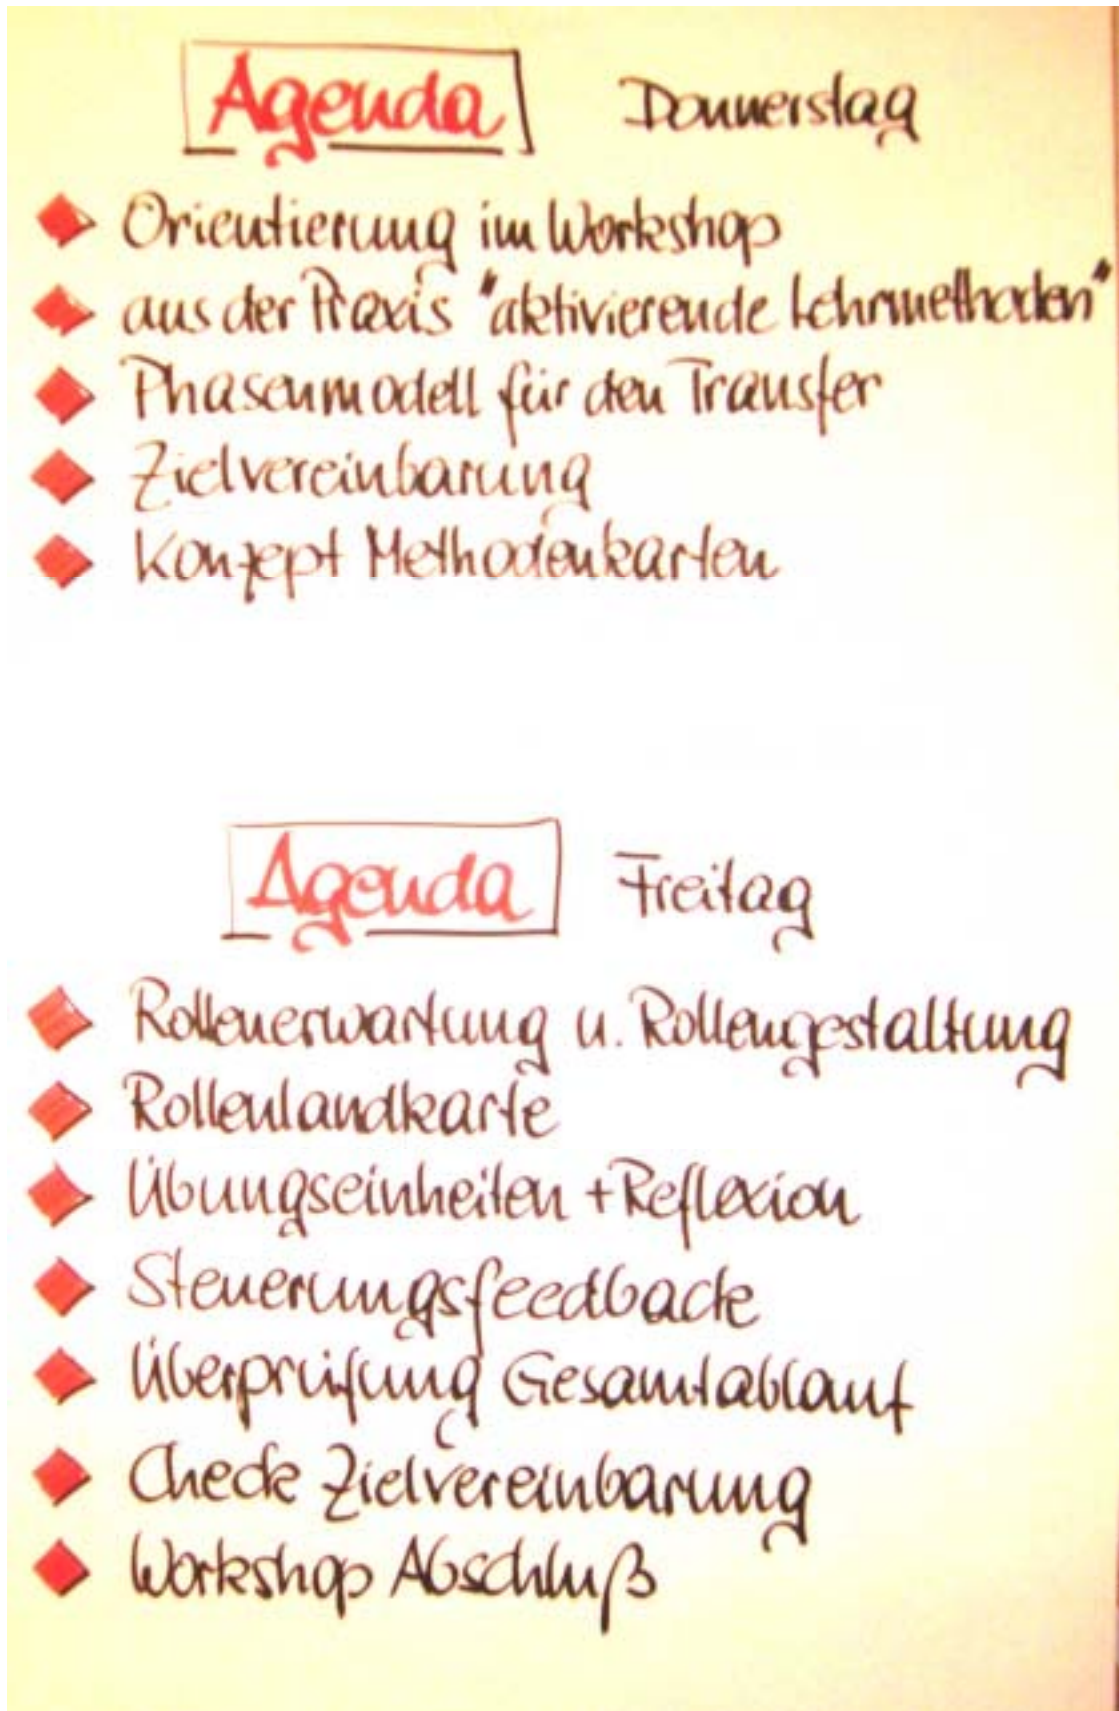 Agenda Donnerstag
Orientierung im Workshop
aus der Praxis "aktivierende Lehrmethoden"
Phasenmodell für den Transfer
Zielvereinbarung
Konzept Methodenkarten
Agenda Freitag
Rollenerwartung u. Rollengestaltung
Rollenlandkarte
Übungseinheiten + Reflexion
Steuerungsfeedback
Überprüfung Gesamtablauf
Check Zielvereinbarung
Workshop Abschluß